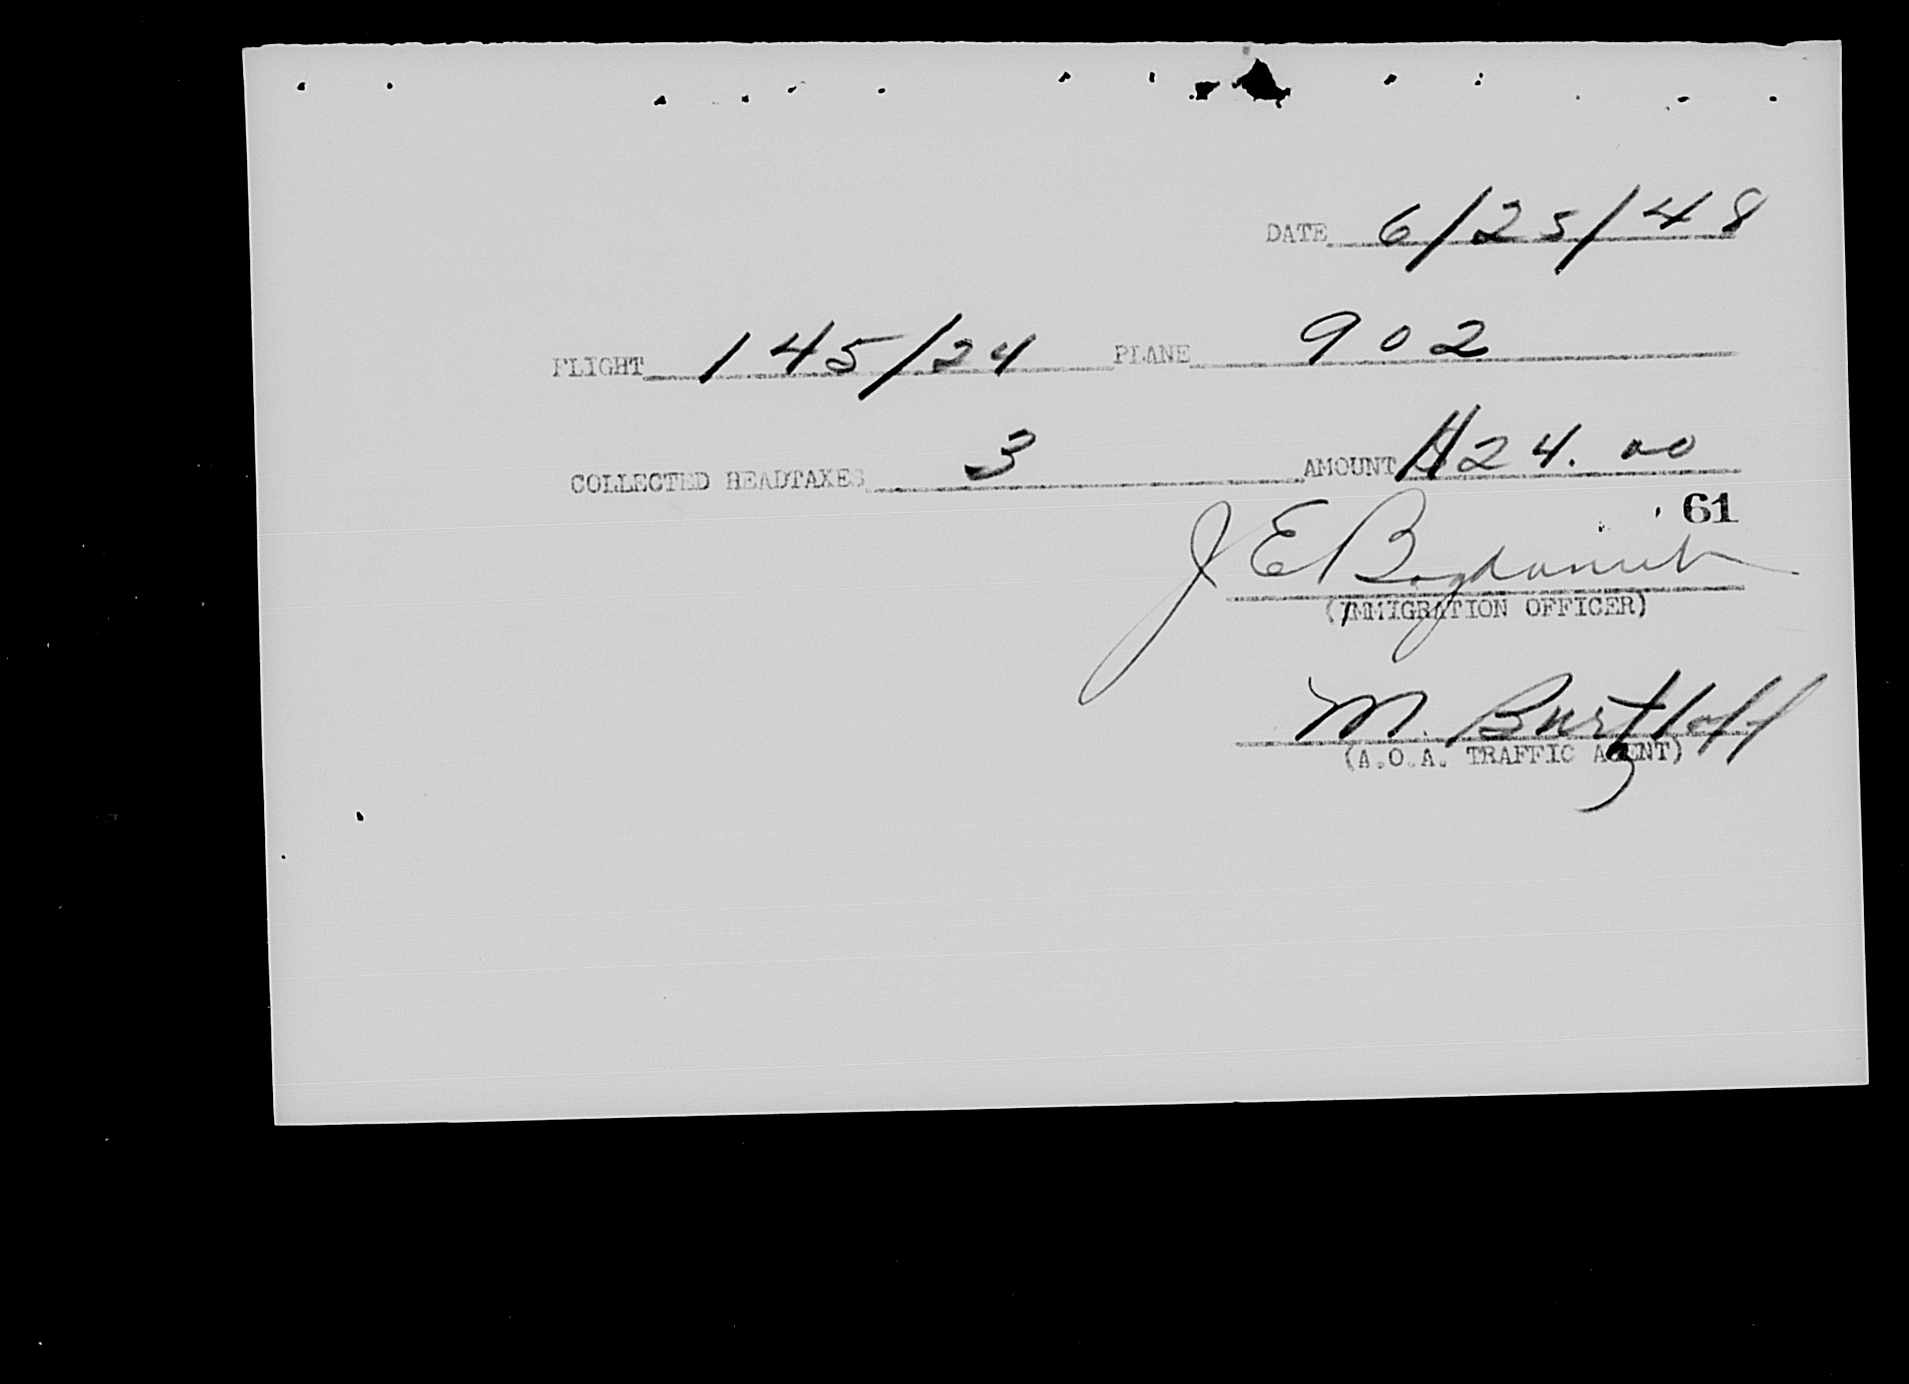 DATE 6/25/48
FLIGHT 145/24 PLANE 902
COLLECTED HEADTAXES 3 AMOUNT $24.00
61
J E Bogdanich
(IMMIGRATION OFFICER)
M. Burgloff
(A.O.A. TRAFFIC AGENT)